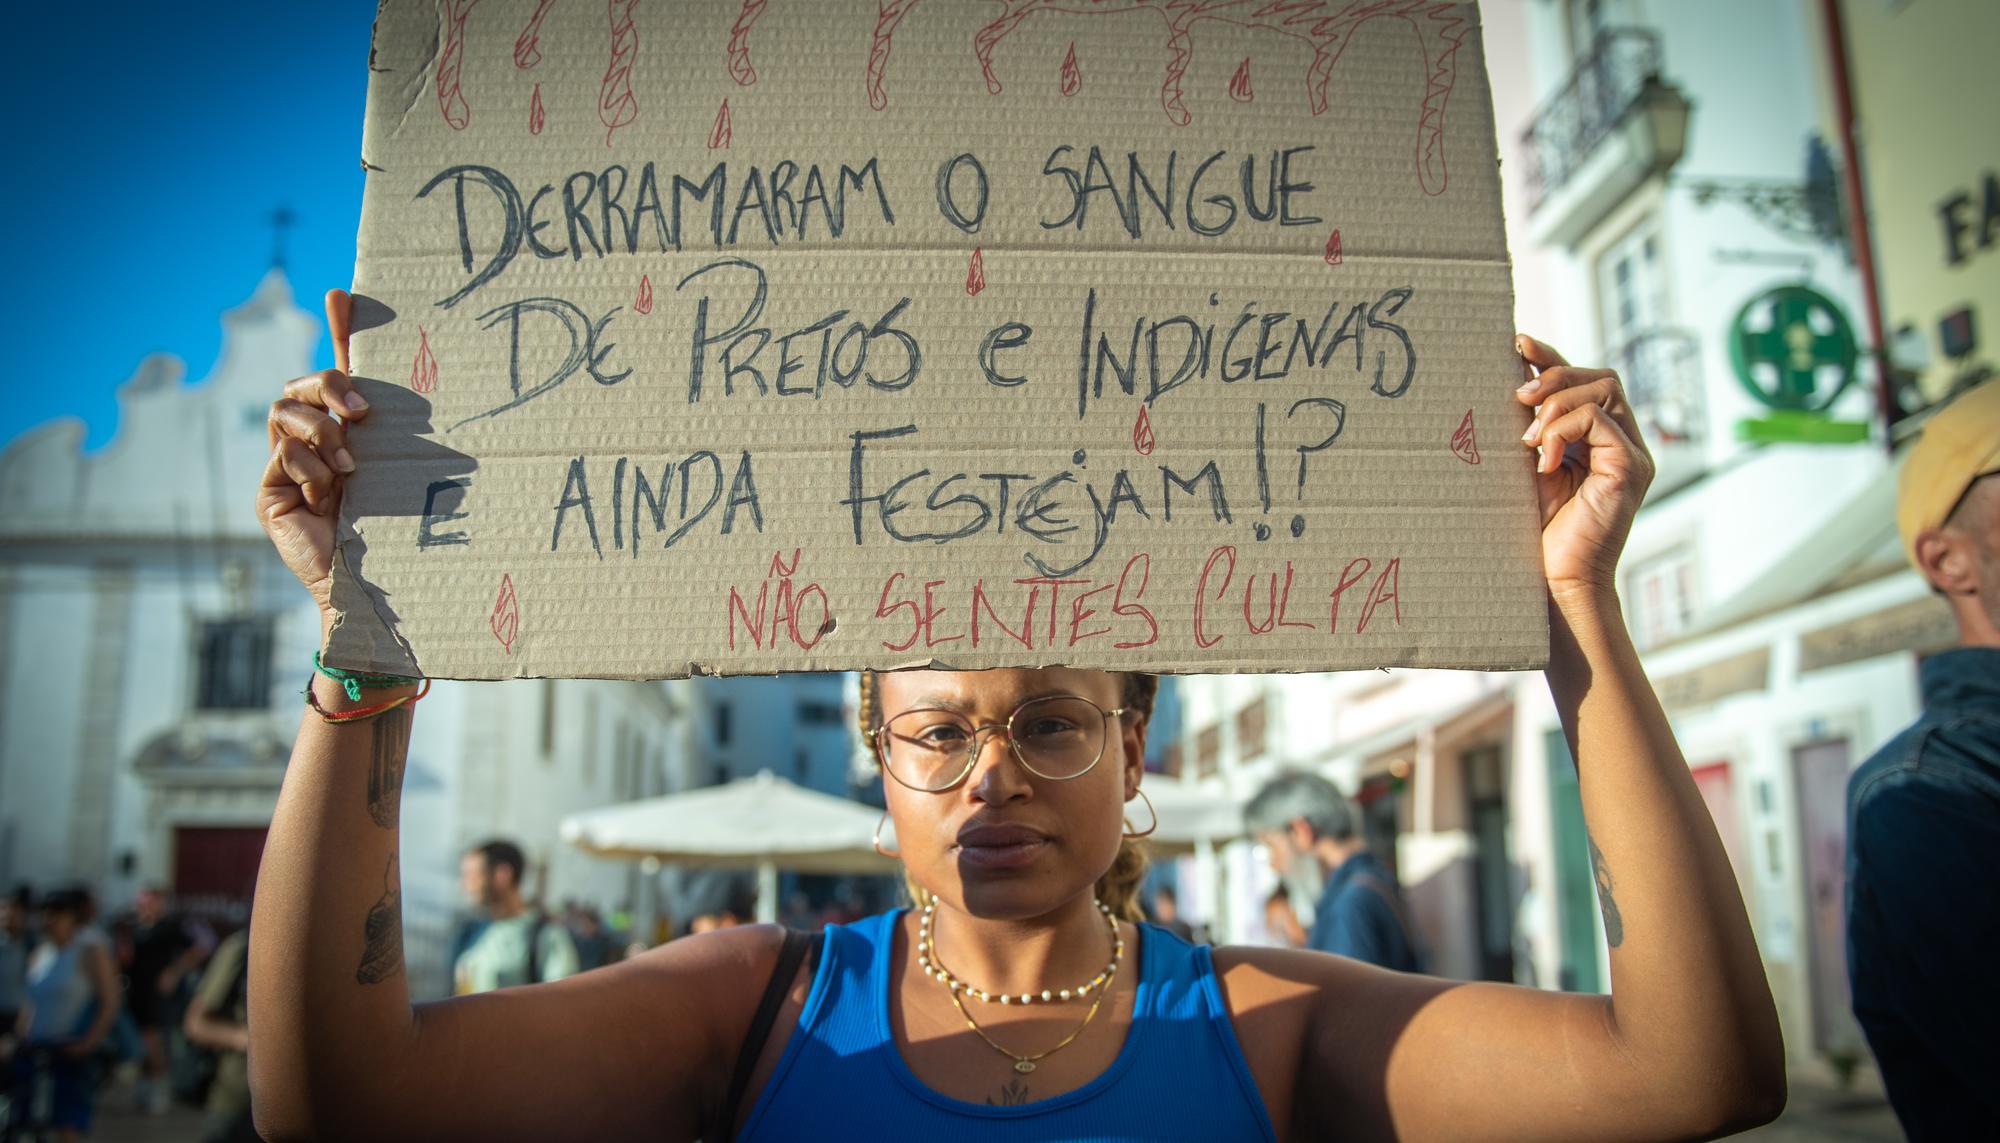 DERRAMARAM O SANGUE
DE PRETOS e INDÍGENAS
E AINDA FESTEJAM!?
NÃO SENTES CULPA
FA